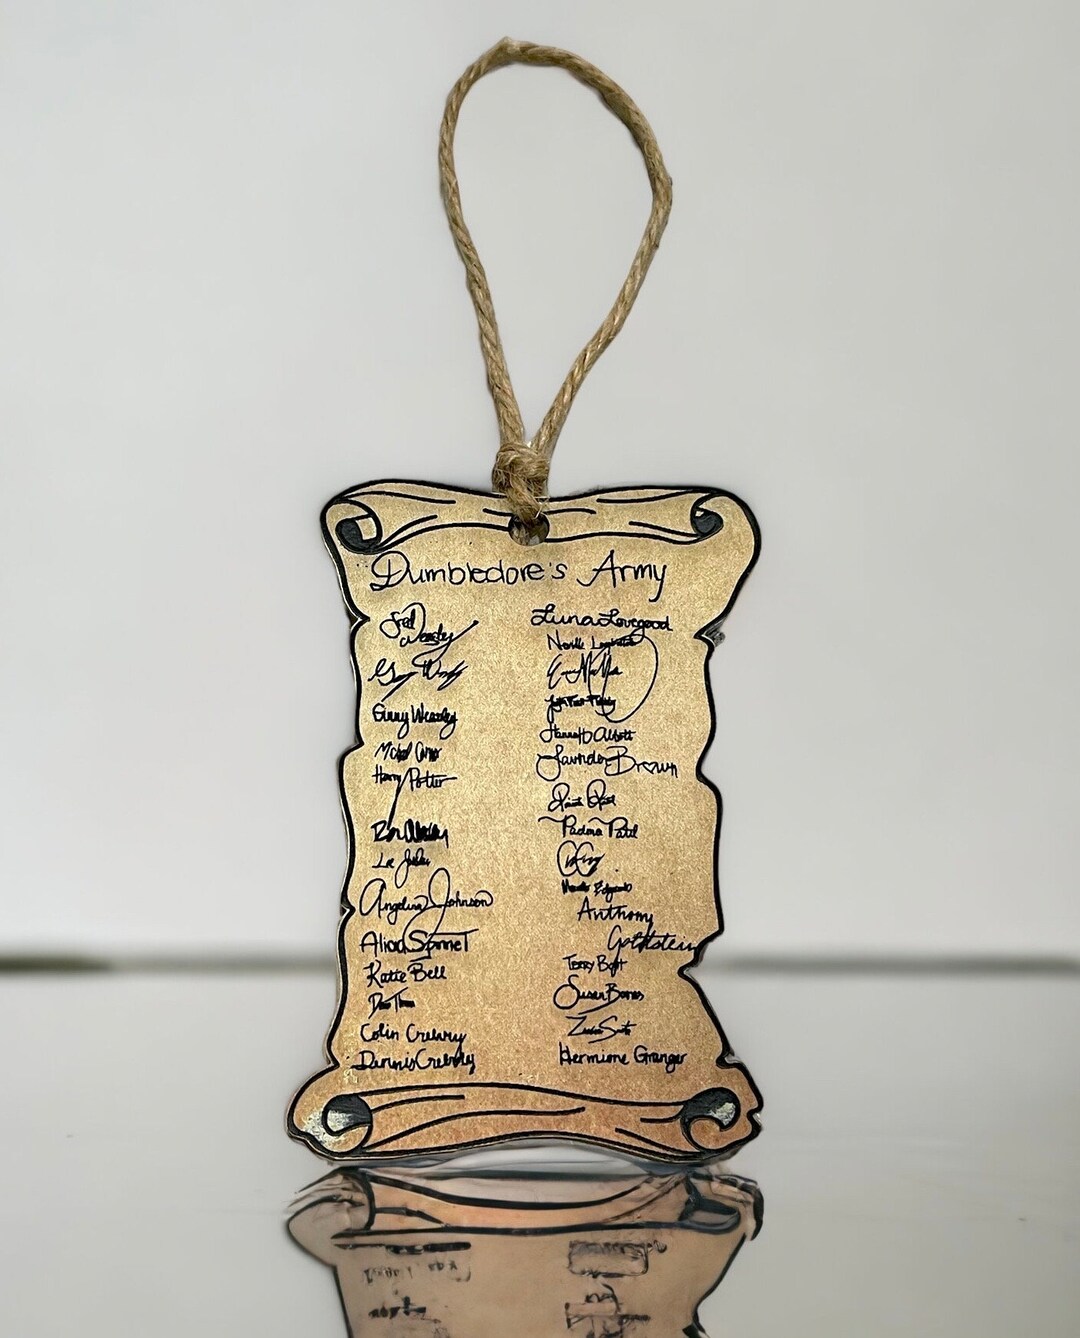 Dumbledore's Army
Fred
Weasley
George Weasley
Ginny Weasley
Michael Corner
Harry Potter
Ron Weasley
Lee Jordan
Angelina Johnson
Alicia Spinnet
Katie Bell
Dean Thomas
Colin Creevey
Dennis Creevey
Luna Lovegood
Neville Longbottom
Hannah Abbott
Lavender Brown
Padma Patil
Anthony
Goldstein
Terry Boot
Susan Bones
Zacharias Smith
Hermione Granger